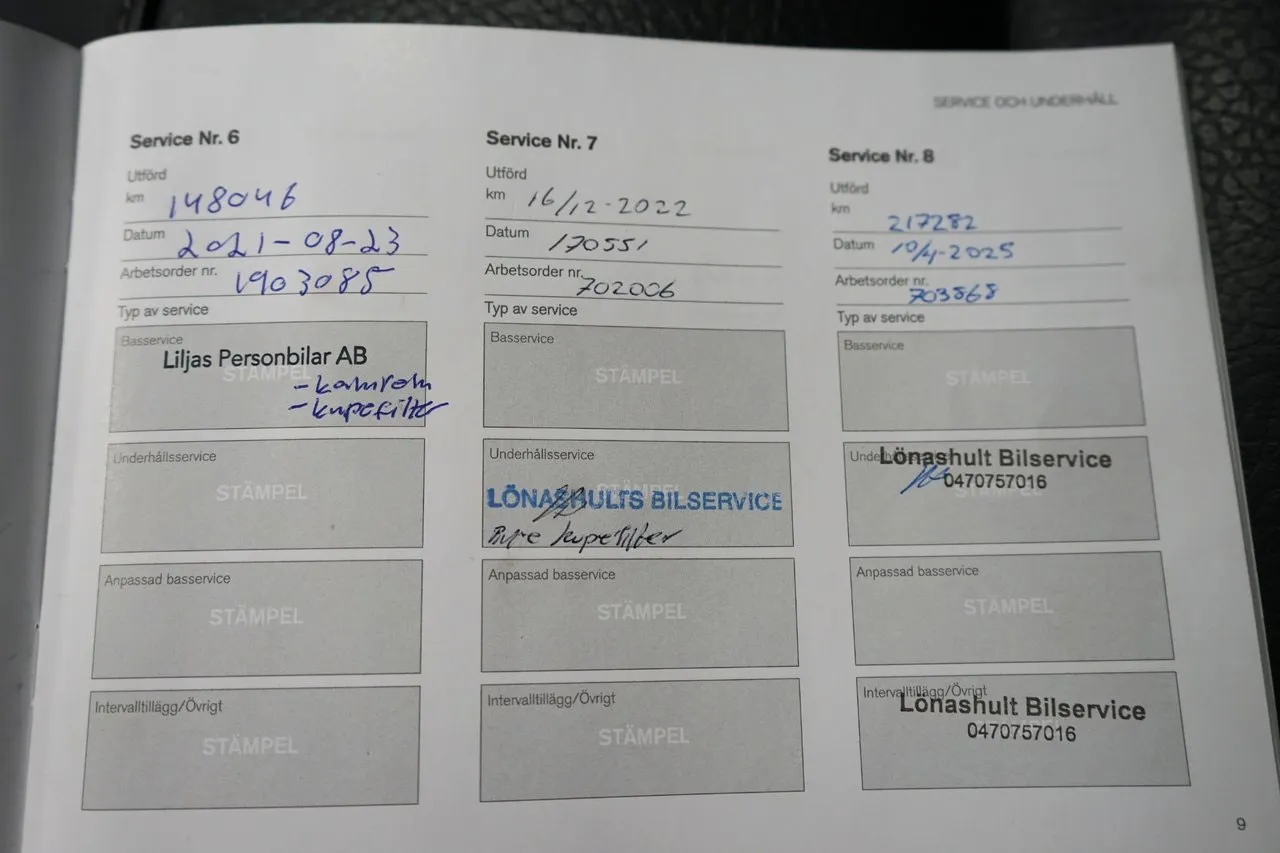 SERVICE OCH UNDERHÅLL
Service Nr. 6
Utförd
km 148046
Datum 2021-08-23
Arbetsorder nr. 1903085
Typ av service
Basservice
STÄMPEL
Liljas Personbilar AB
- kamrem
- kupefilter
Underhållsservice
STÄMPEL
Anpassad basservice
STÄMPEL
Intervalltillägg/Övrigt
STÄMPEL
Service Nr. 7
Utförd
km 16/12-2022
Datum 170551
Arbetsorder nr. 702006
Typ av service
Basservice
STÄMPEL
Underhållsservice
STÄMPEL
LÖNASHULTS BILSERVICE
kupefilter
Anpassad basservice
STÄMPEL
Intervalltillägg/Övrigt
STÄMPEL
Service Nr. 8
Utförd
km 217282
Datum 10/4-2025
Arbetsorder nr. 703568
Typ av service
Basservice
STÄMPEL
Underhållsservice
Lönashult Bilservice
0470757016
STÄMPEL
Anpassad basservice
STÄMPEL
Intervalltillägg/Övrigt
Lönashult Bilservice
STÄMPEL
0470757016
9